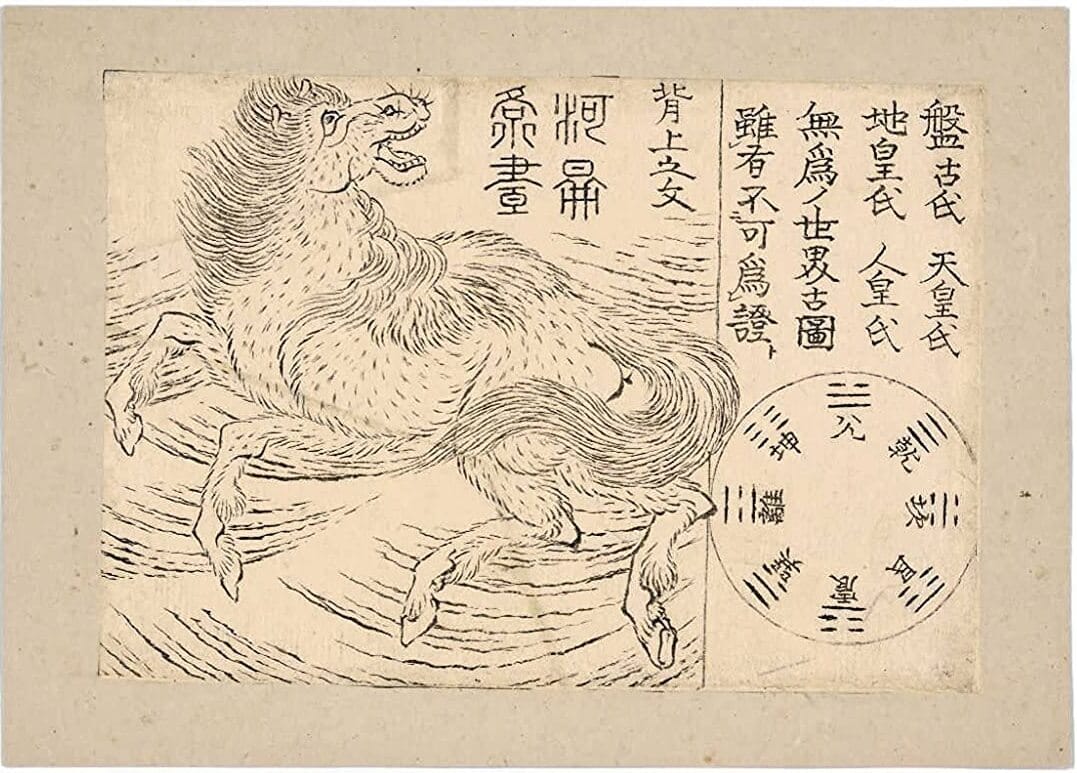 盤古氏 天皇氏
地皇氏 人皇氏
無爲ノ世界古圖
雖有不可爲證
背上之文
河
兌
乾
坎
艮
震
巽
離
坤